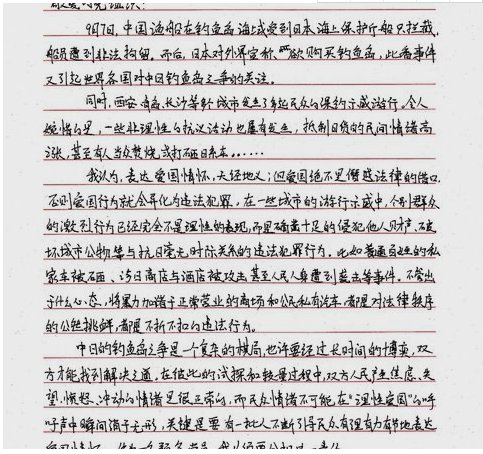 敬爱的党组织：
9月7日，中国渔船在钓鱼岛海域受到日本海上保护厅船只拦截，
船员遭到非法拘留。而后，日本对外宣称，欲购买钓鱼岛，此番事件
又引起世界各国对中日钓鱼岛之争的关注。
同时，西安、青岛、长沙等针城市发生了多起民众的保钓示威游行。令人
惋惜的是，一些非理性的抗议活动也屡有发生，抵制日货的民间情绪高
涨，甚至有人当众焚烧或打砸日系车......
我认为，表达爱国情怀，天经地义；但爱国绝不是僭惑法律的借口，
否则爱国行为就会异化为违法犯罪。在一些城市的游行示威中，个别群众
的激烈行为已经完全不是理性的表现，而是确凿十足的侵犯他人财产、破
坏城市公物等与抗日毫无时际关系的违法犯罪行为。比如普通百姓的私
家车被砸、涉日商店与酒店被攻击甚至人民人身遭到袭击等事件。不管出
于什么心态，将暴力加诸于正常营业的商场和公民私有汽车，都是对法律秩序
的公然挑衅，都是不折不扣的违法行为。
中日的钓鱼岛之争是一个复杂的棋局，也许要经过长时间的博弈，双
方才能找到解决之道，在彼此的试探和较量过程中，双方人民产生焦虑、失
望、愤怒、冲动的情绪是很正常的，而民众情绪不可能在“理性爱国”的呼
吁声中瞬间消于无形，关键是要有一批人不断引导民众有理有力有节地表达